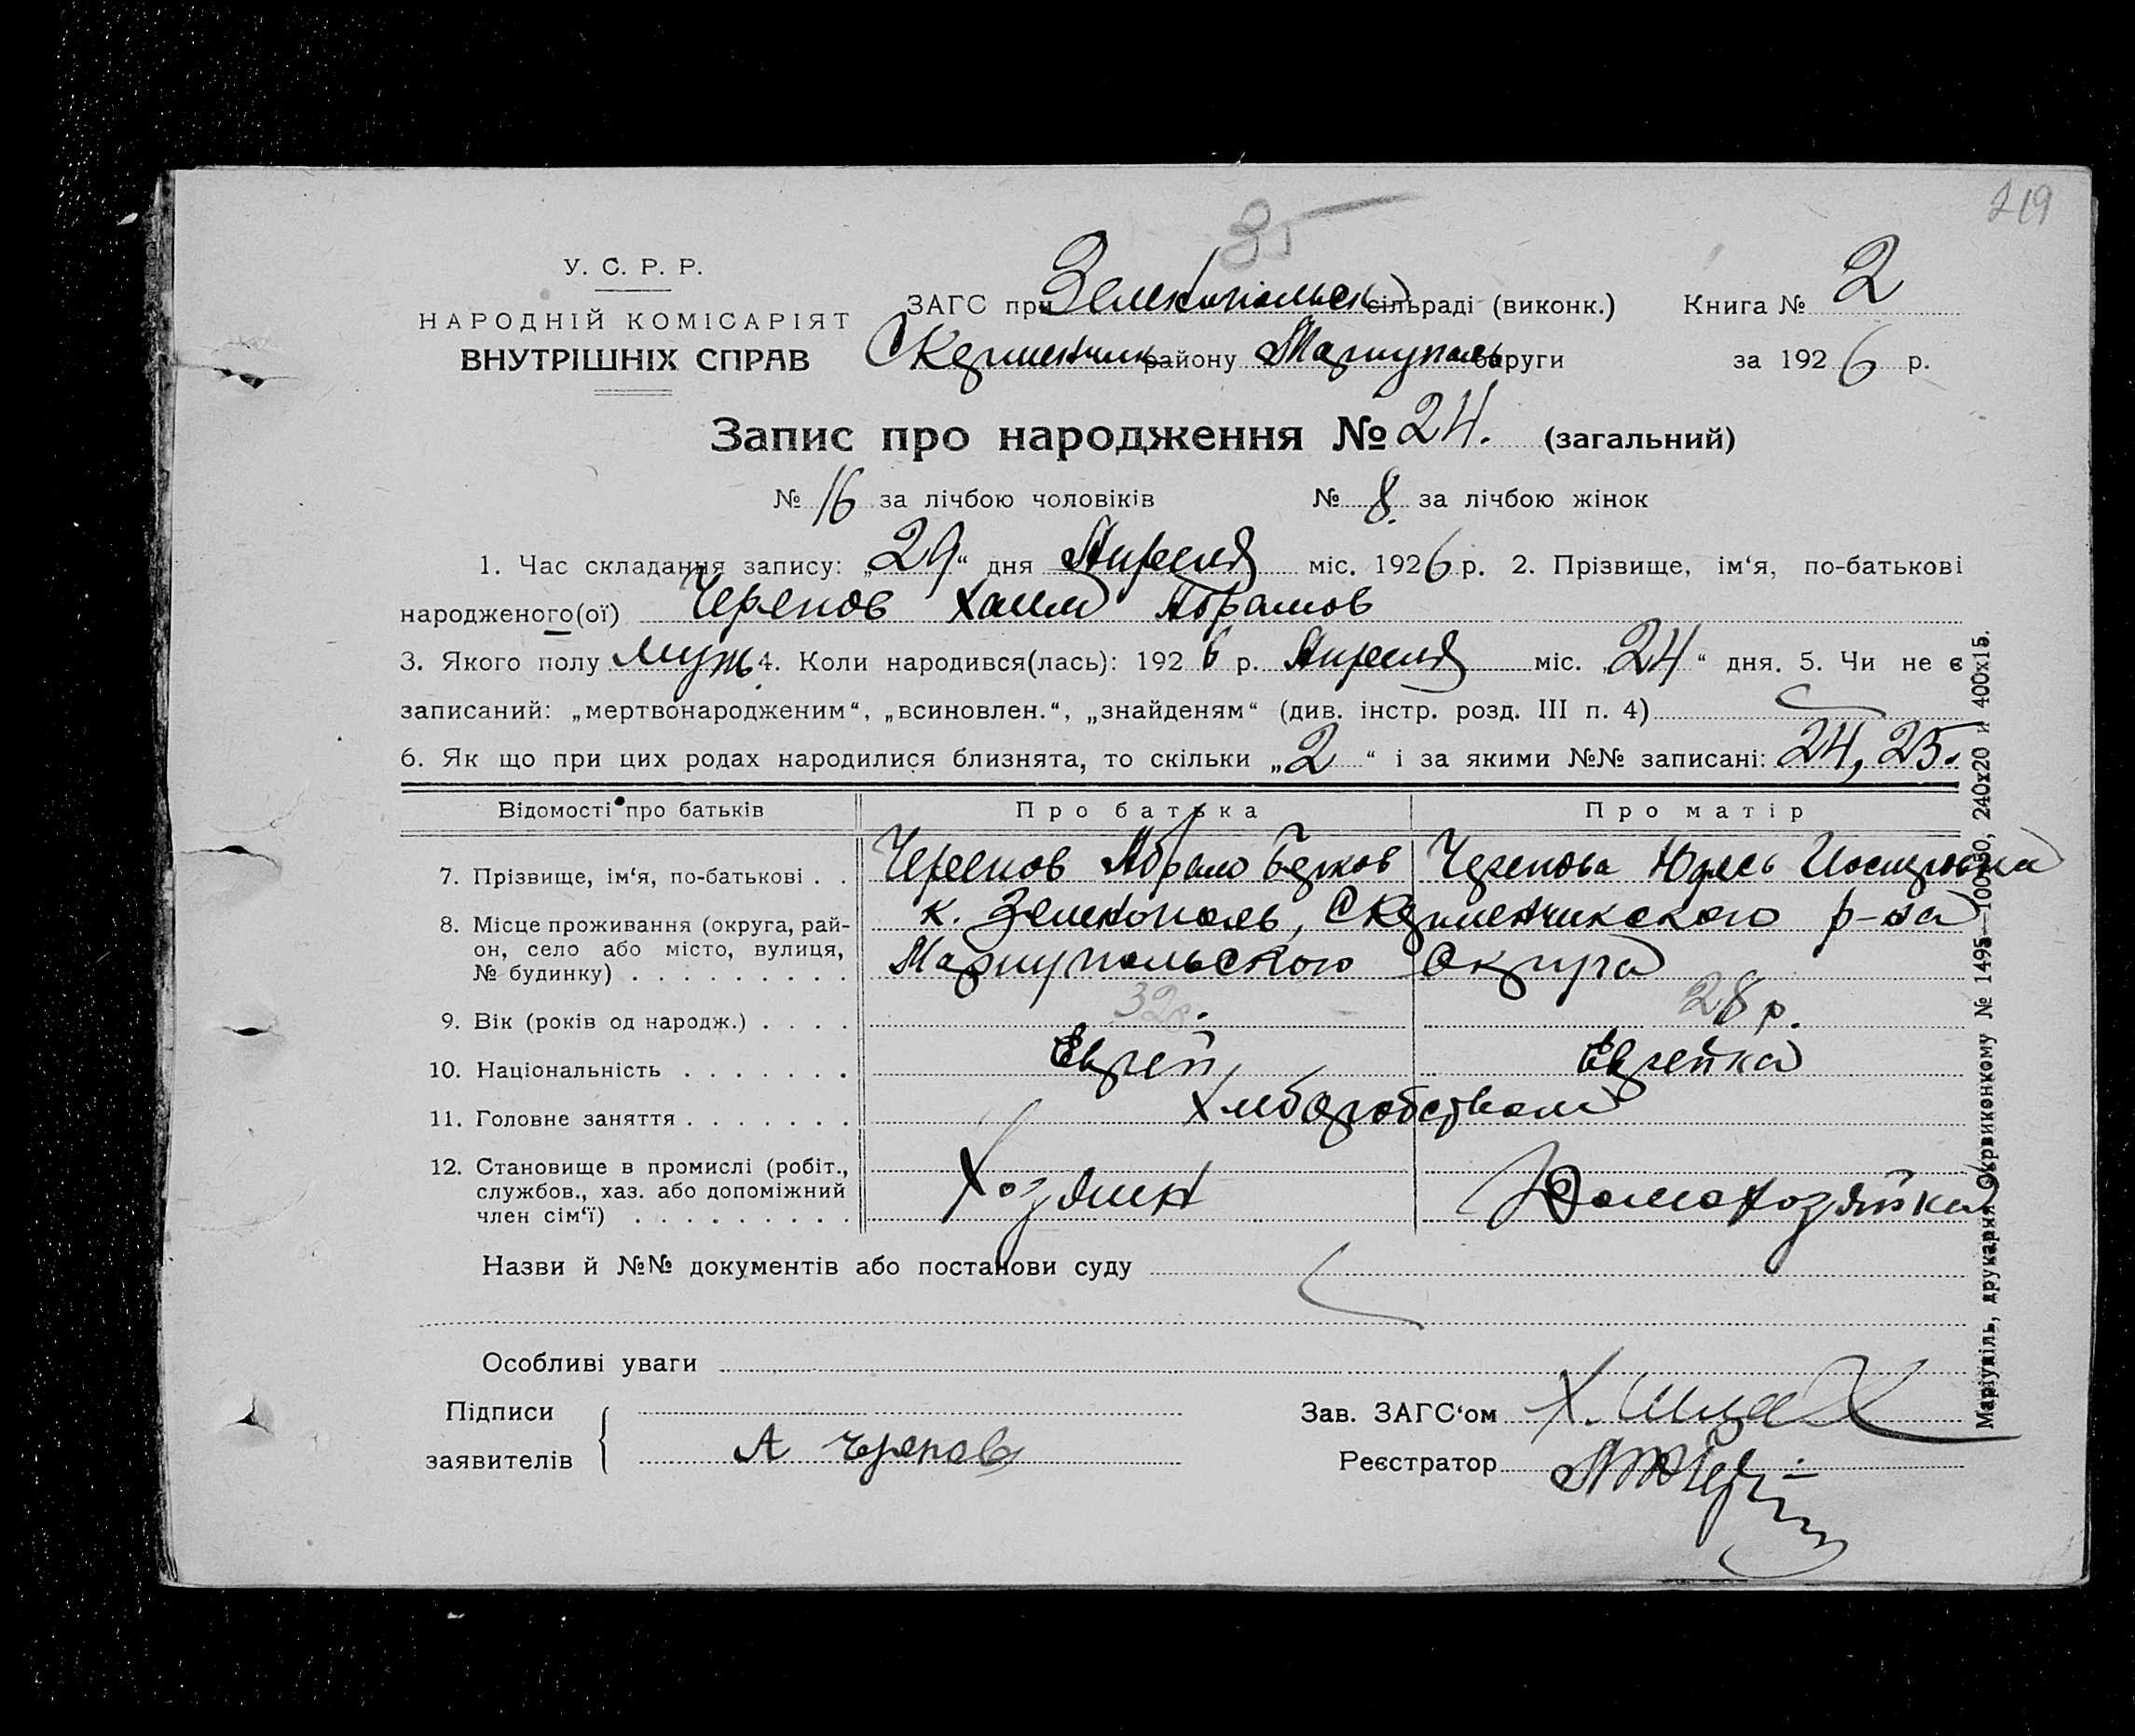 219
35
У. С. Р. Р.
НАРОДНІЙ КОМІСАРІЯТ
ВНУТРІШНІХ СПРАВ
ЗАГС при Зеленопольск сільраді (виконк.) Книга № 2
Скременчик району Мариуполь округи за 1926 р.
Запис про народження № 24. (загальний)
№ 16 за лічбою чоловіків № 8. за лічбою жінок
1. Час складання запису: „29“ дня Апреля міс. 1926 р. 2. Прізвище, ім‘я, по-батькові
народженого(ої) Черепов Хаим Абрамов
3. Якого полу муж. 4. Коли народився(лась): 1926 р. Апреля міс. „24“ дня. 5. Чи не є
записаний: „мертвонародженим“, „всиновлен.“, „знайденям“ (див. інстр. розд. III п. 4)
6. Як що при цих родах народилися близнята, то скільки „2“ і за якими №№ записані: 24, 25.
Відомості про батьків Про батька Про матір
7. Прізвище, ім‘я, по-батькові . . Черепов Абрам Берков Черепова
8. Місце проживання (округа, рай- к. Зеленополь, Скременчикского р-на
он, село або місто, вулиця,
№ будинку) . . . . . . . . . Мариупольского Округа
9. Вік (років од народж.) . . . . 32р. 28 р.
10. Національність . . . . . . . Еврей Еврейка
11. Головне заняття . . . . . . . Хлеборобством
12. Становище в промислі (робіт.,
службов., хаз. або допоміжний Хозяин Домохозяйка
член сім‘ї) . . . . . . . . .
Назви й №№ документів або постанови суду
Особливі уваги
Підписи
заявителів А Черепов
Зав. ЗАГС‘ом Х.
Реєстратор
Маріупіль, друкарня Окрвиконкому № 1495—100×50, 240х20 и 400х15.